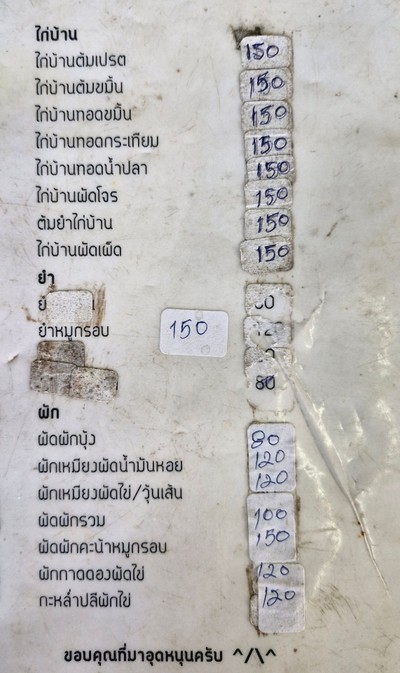 ไก่บ้าน
ไก่บ้านต้มเปรต 150
ไก่บ้านต้มขมิ้น 150
ไก่บ้านทอดขมิ้น 150
ไก่บ้านทอดกระเทียม 150
ไก่บ้านทอดน้ำปลา 150
ไก่บ้านผัดโจร 150
ต้มยำไก่บ้าน 150
ไก่บ้านผัดเผ็ด 150
ยำ
ยำหมูกรอบ 150
80
ผัก
ผัดผักบุ้ง 80
ผักเหมียงผัดน้ำมันหอย 120
ผักเหมียงผัดไข่/วุ้นเส้น 120
ผัดผักรวม 100
ผัดผักคะน้าหมูกรอบ 150
ผักกาดดองผัดไข่ 120
กะหล่ำปลีผักไข่ 120
ขอบคุณที่มาอุดหนุนครับ ^/\^